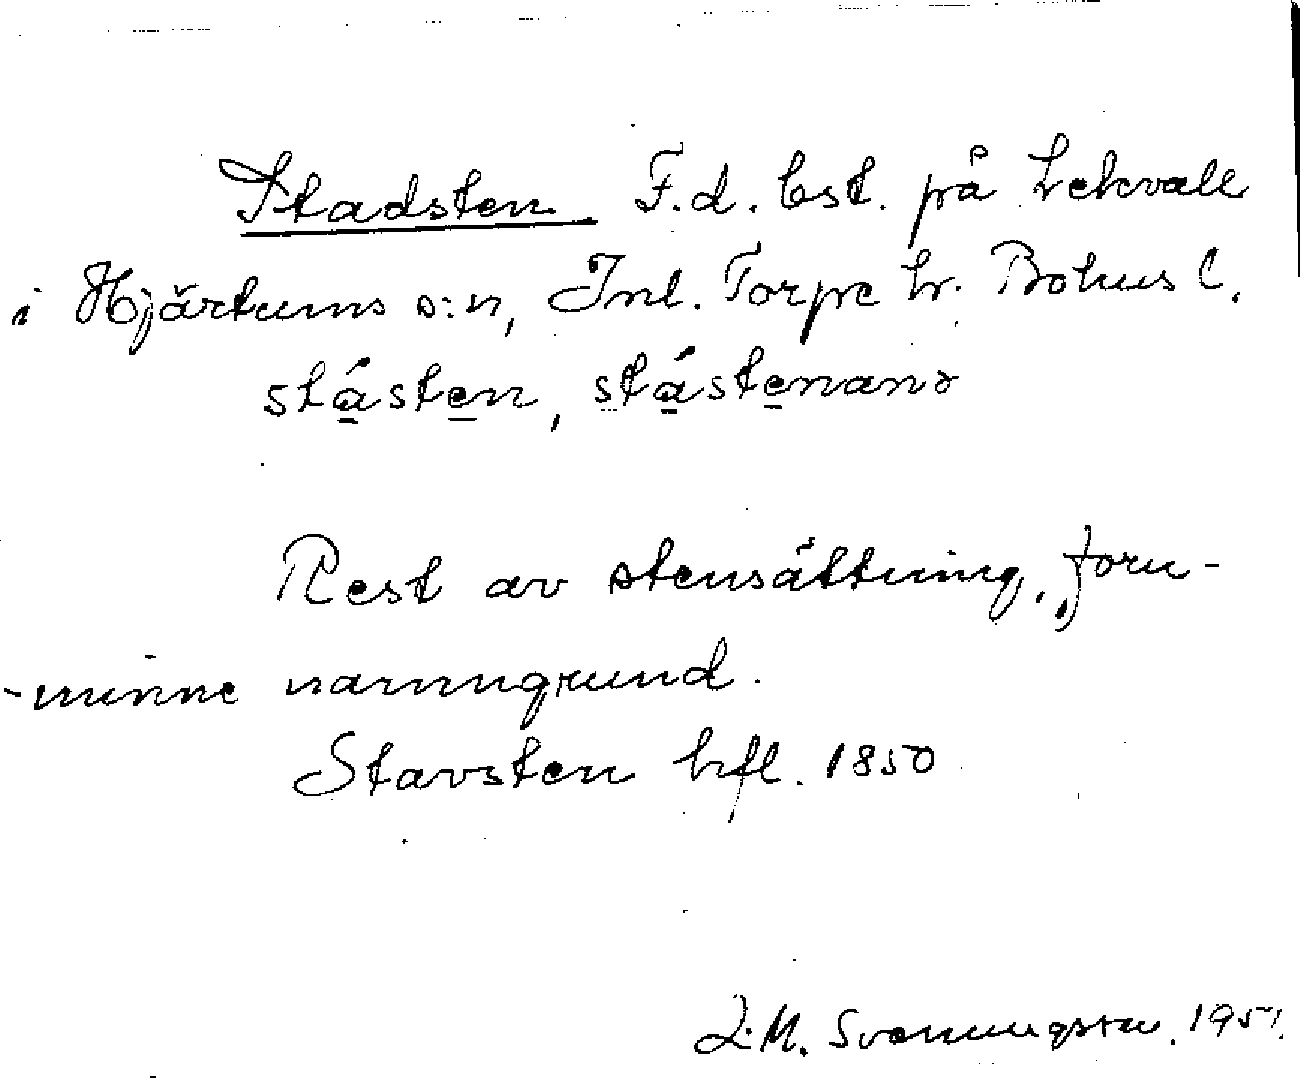 Stadsten. F.d. bst. på Lekvall
i Hjärtums s:n, Inl. Torpe hr. Bohus l.
stásten, stástenanə
Rest av stensättning, forn-
-minne namngrund.
Stavsten hfl. 1850
L.M. Svenungsson. 1951.